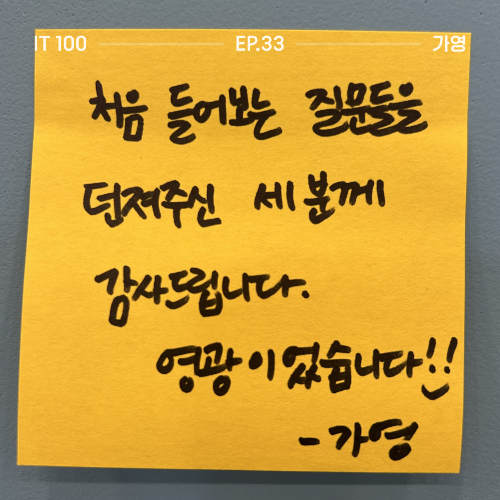 IT 100 EP.33 가영
처음 들어보는 질문들을
던져주신 세 분께
감사드립니다.
영광이었습니다!!
- 가영